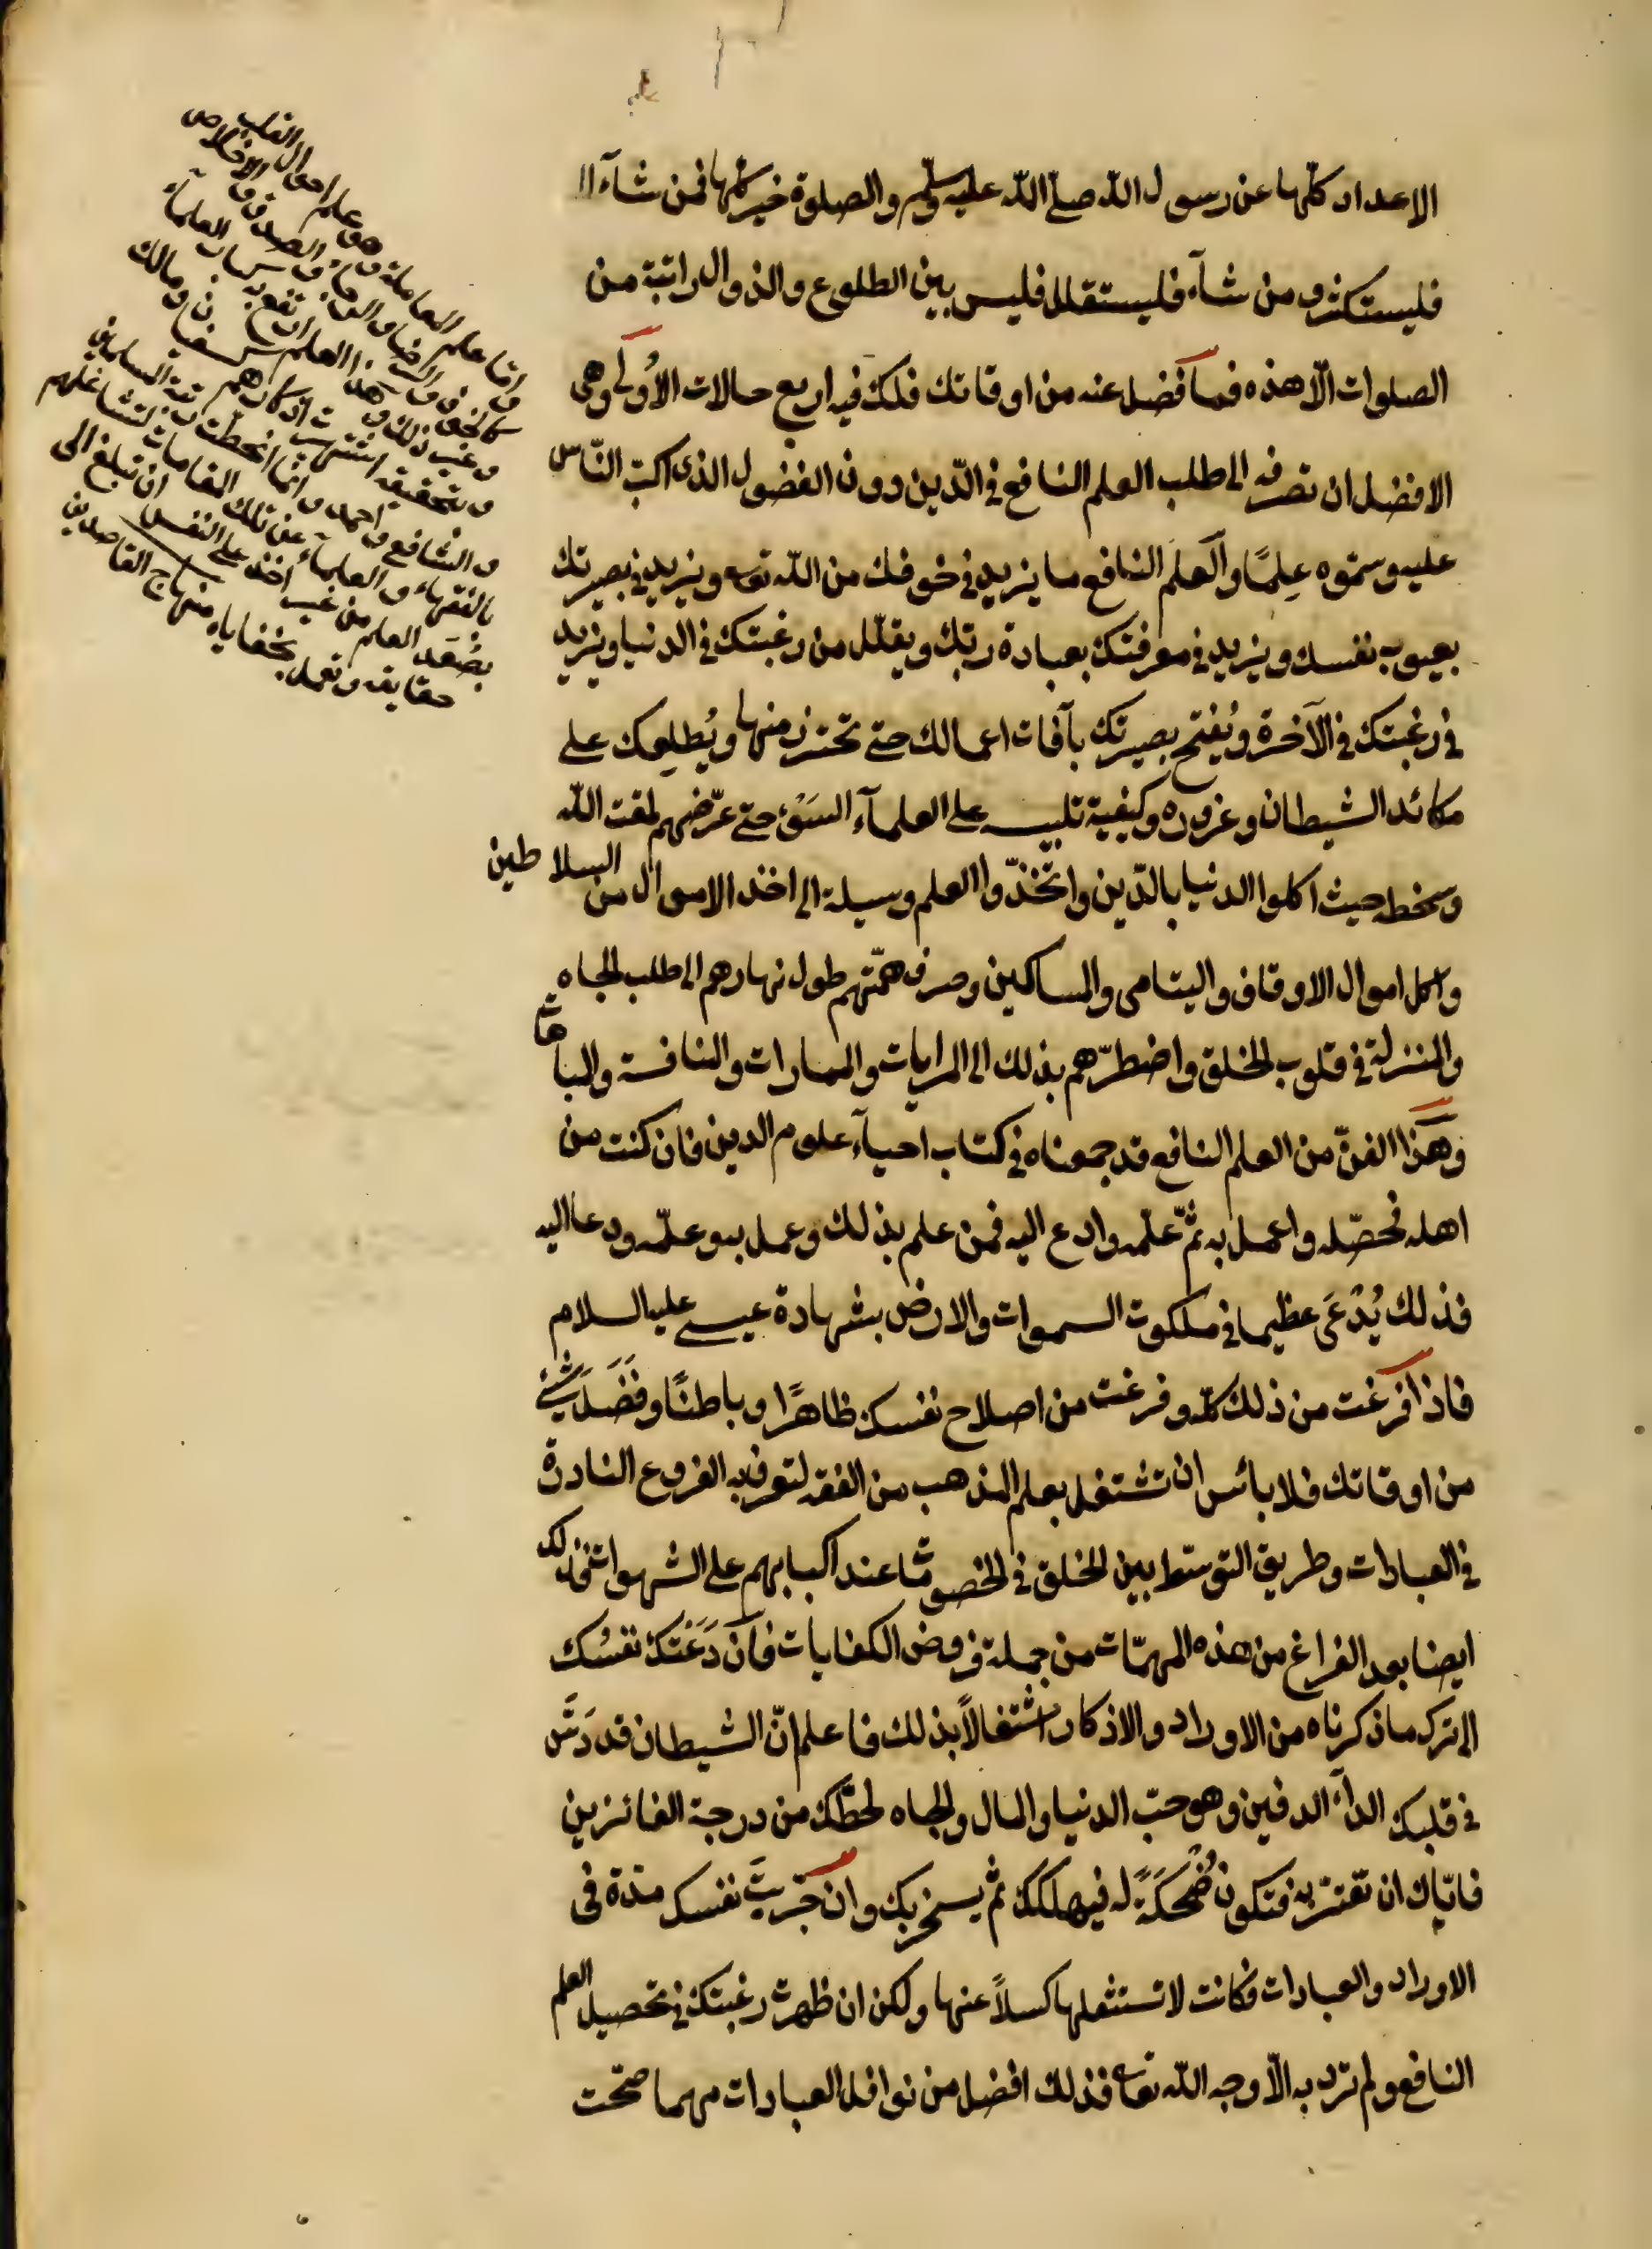 الاعداد كلّها عن رسول اللّه صلّى اللّه عليه وسلّم والصلوة خير كلّها فمن شآء
فليستكثر ومن شآء فليستقلل فليس بين الطلوع والزوال راتبة من
الصلوات الّا هذه فما فضل عنه من اوقاتك فلك فيه اربع حالات الأولى وهى
الافضل ان تصرفه الى طلب العلم النافع فى الدّين دون الفضول الذى اكبّ النّاس
عليه وسمّوه عِلمًا والعلم النافع ما يزيد فى خوفك من اللّه تعه ويزيد فى بصيرتك
بعيوب نفسك ويزيد فى معرفتك بعبادة ربّك ويقلّل من رغبتك فى الدنيا ويزيد
فى رغبتك فى الآخرة ويُفتح بصيرتك بآفات اعمالك حتى تحترز منها ويُطلِعك على
مكائد الشيطان وغروره وكيفية تلبيسه على العلمآء السَوْء حتى عرّضهم لمقت اللّه
وسخطه حيث اكلوا الدنيا بالدّين واتّخذوا العلم وسيلة الى اخذ الاموال من السلاطين
واكل اموال الاوقاف واليتامى والمساكين وصرف همّتهم طول نهارهم الى طلب الجاه
والمنزلة فى قلوب الخلق واضطرّهم بذلك الى المرايات والممارات والمنافسة والمباهات
وهذا الفنّ من العلم النافع قد جمعناه فى كتاب احيآء علوم الدين فان كنت من
اهله فحصّله واعمل به ثمّ علّمه وادع اليه فمن علم بذلك وعمل به وعلّمه ودعا اليه
فذلك يُدْعَى عظيما فى ملكوت السموات والارض بشهادة عيسى عليه السلام
فاذا فرغت من ذلك كلّه وفرغت من اصلاح نفسك ظاهرًا وباطنًا وفَضَلَ شئ
من اوقاتك فلا بائس ان تشتغل بعلم المذهب من الفقه لتعرف به الفروع النادرة
فى العبادات وطريق التوسّط بين الخلق فى الخصومات عند اكبابهم على الشهوات فذلك
ايضا بعد الفراغ من هذه المهمّات من جملة فروض الكفايات فان دَعَتك نفسُك
الى ترك ما ذكرناه من الاوراد والاذكار اشتغالًا بذلك فاعلم انّ الشيطان قد دَسَّ
فى قلبك الدآء الدفين وهو حبّ الدنيا والمال والجاه لحطّك من درجة الفائزين
فايّاك ان تغترّ به فتكون ضُحكَةً له فيهلكك ثم يسخر بك وان جرّبتَ نفسك مدّة فى
الاوراد والعبادات فكانت لا تستثقلها كسلًا عنها ولكن ان ظهرت رغبتك فى تحصيل العلم
النافع ولم ترد به الّا وجه اللّه تعه فذلك افضل من نوافل العبادات مهما صحّت
وامّا علم المعاملة وهو علم احوال القلب
كالخوف والرجاء والصدق والاخلاص
وغير ذلك وهذا العلم ارتفع به كبار العلمآء
وبتحقيقه اشتهرت اذكارهم كسفيان ومالك
والشافع واحمد وانّما انحطّت رتبة المسلمين
بالفقهاء والعلمآء عن تلك المقامات لتشاغلهم
بصُوَر العلم من غير اخذ على النفس ان تبلغ الى
حقايقه وتعمل بخفاياه منهاج القاصدين